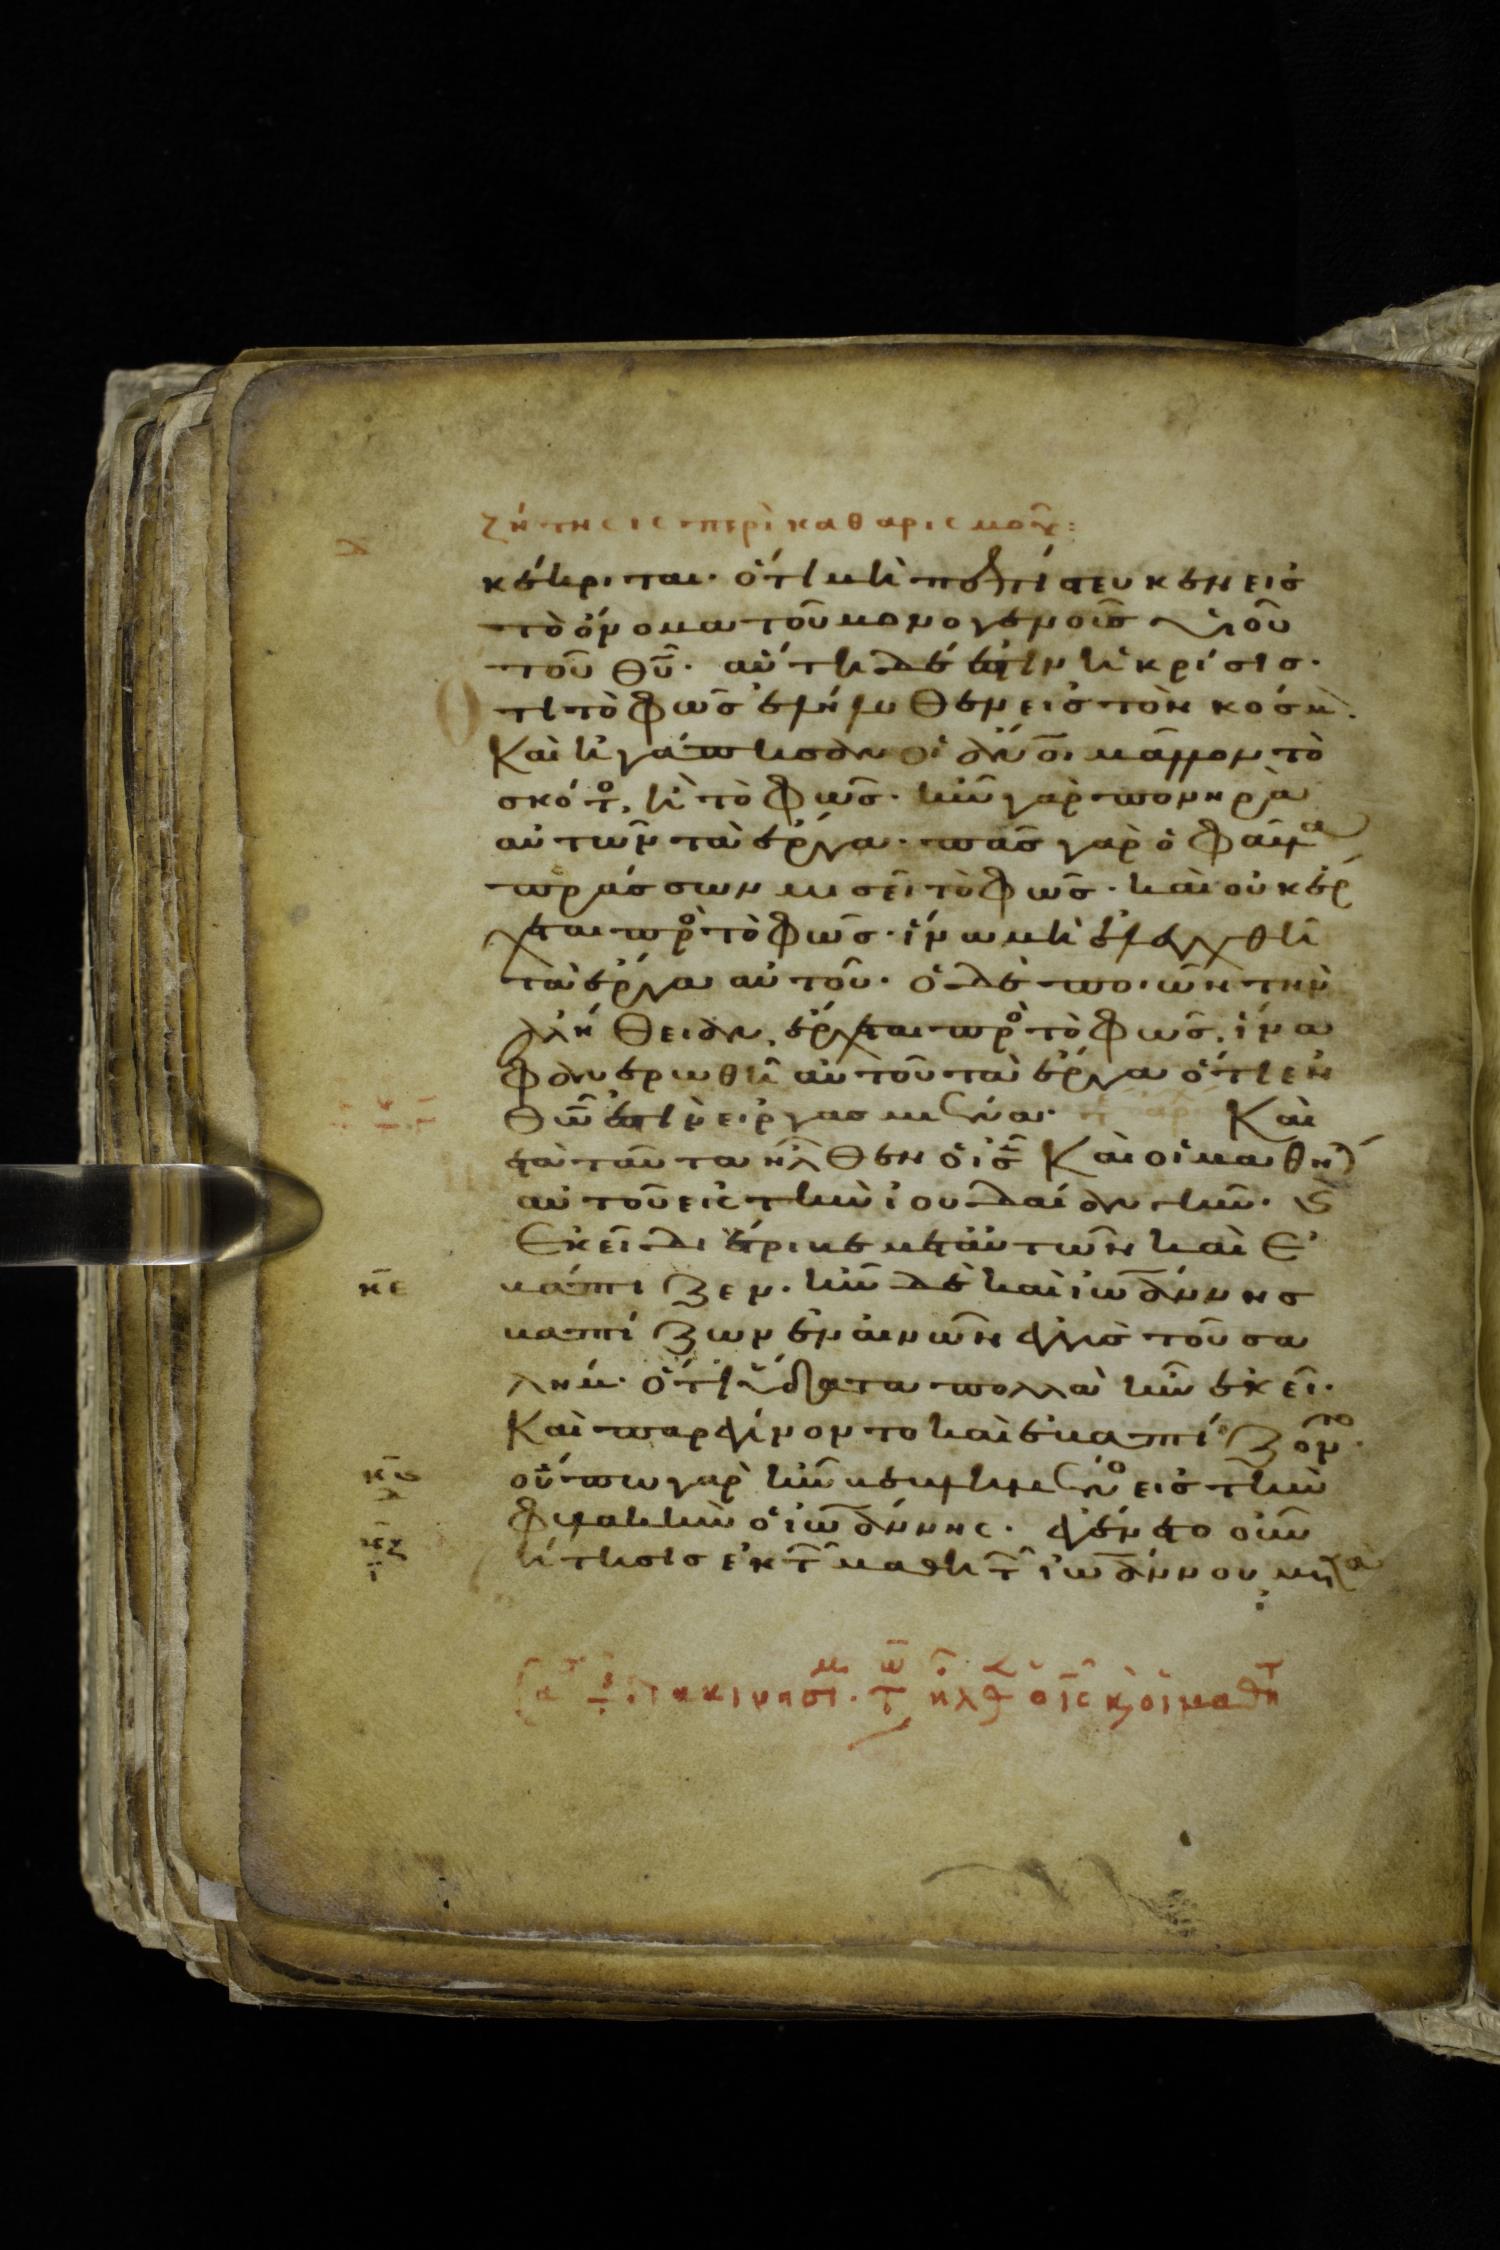 ζήτησις περὶ καθαρισμοῦ:
κέκριται. ὅτι μὴ πεπίστευκεν εἰσ
τὸ ὄνομα τοῦ μονογενοῦσ υἱοῦ
τοῦ θῦ. αὕτη δέ ἐστιν ἡ κρίσισ.
Ὅτι τὸ φῶσ ἐλήλυθεν εἰσ τὸν κόσμ.
Καὶ ἠγάπησαν οἱ ἄνοι μᾶλλον τὸ
σκότο, ἢ τὸ φῶσ. ἦν γὰρ πονηρὰ
αὐτῶν τὰ ἔργα. πᾶσ γὰρ ὁ φαῦλα
πράσσων μισεῖ τὸ φῶσ. καὶ οὐκ ἔρ
χεται πρὸ τὸ φῶσ. ἵνα μὴ ἐλεγχθῆ
τὰ ἔργα αὐτοῦ. ὁ δὲ ποιῶν τὴν
ἀλήθειαν, ἔρχεται πρὸ τὸ φῶσ, ἵνα
φανερωθῆ αὐτοῦ τὰ ἔργα ὅτι ἐν
θῶ ἐστὶν εἰργασμένα. Καὶ
μετὰ ταῦτα ἦλθεν ὁ ἰσ Καὶ οἱ μαθη
αὐτοῦ εἰς τὴν ἰουδαίαν γῆν.
Ἐκεῖ διέτριβε μετ αὐτῶν καὶ ἐ
κε βάπτιζεν. ἦν δὲ καὶ ἰωάννησ
βαπτίζων ἐν αἰνὼν ἐγγὺσ τοῦ σα
λήμ. ὅτι ὕδατα πολλὰ ἦν ἐκεῖ.
Καὶ παρεγίνοντο καὶ ἐβαπτίζοντο.
κϛ οὔπω γὰρ ἦν βεβλημένο εἰσ τὴν
φυλακὴν ὁ ἰωάννης. ἐγένετο οὖν
κζ ζήτησισ ἐκ τ μαθητ ἰωάννου μετὰ
τ διακινησι. τ ηλθ ὁ ις κ οἱ μαθητ